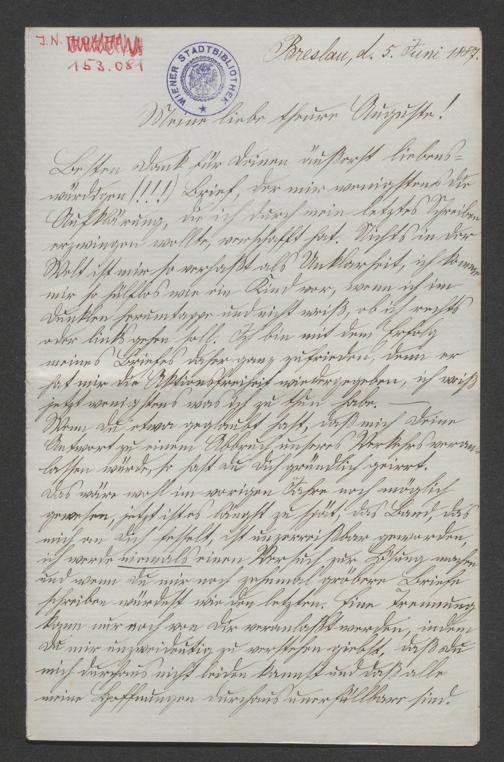 J.N.
153.081
WIENER STADTBIBLIOTHEK
Breslau, d. 5. Juni 1887.
Meine liebe theure Auguste!
Besten Dank für Deinen äußerst liebens-
würdigen (!!!) Brief, der mir wenigstens die
Aufklärung, die ich durch mein letztes Schreiben
erzwingen wollte, verschafft hat. Nichts in der
Welt ist mir so verhaßt als Unklarheit, ich komme
mir so hülflos wie ein Kind vor, wenn ich im
Dunklen herumtappe und nicht weiß, ob ich rechts
oder links gehen soll. Ich bin mit dem Erfolg
meines Briefes daher ganz zufrieden, denn er
hat mir die Aktionsfreiheit wiedergegeben, ich weiß
jetzt wenigstens was ich zu thun habe. —
Wenn Du etwa geglaubt hast, daß mich Deine
Antwort zu einem Abbruch unseres Verkehrs veran-
lassen würde, so hast Du Dich gründlich geirrt.
Das wäre wohl im vorigen Jahre noch möglich
gewesen, jetzt ist es längst zu spät, das Band, das
mich an Dich fesselt, ist unzerreißbar geworden,
ich werde niemals einen Versuch zur Lösung machen
und wenn Du mir noch zehnmal gröbere Briefe
schreiben würdest wie den letzten. Eine Trennung
kann nur noch von Dir veranlaßt werden, indem
Du mir unzweideutig zu verstehen giebst, daß Du
mich durchaus nicht leiden kannst und daß alle
meine Hoffnungen durchaus unerfüllbar sind.